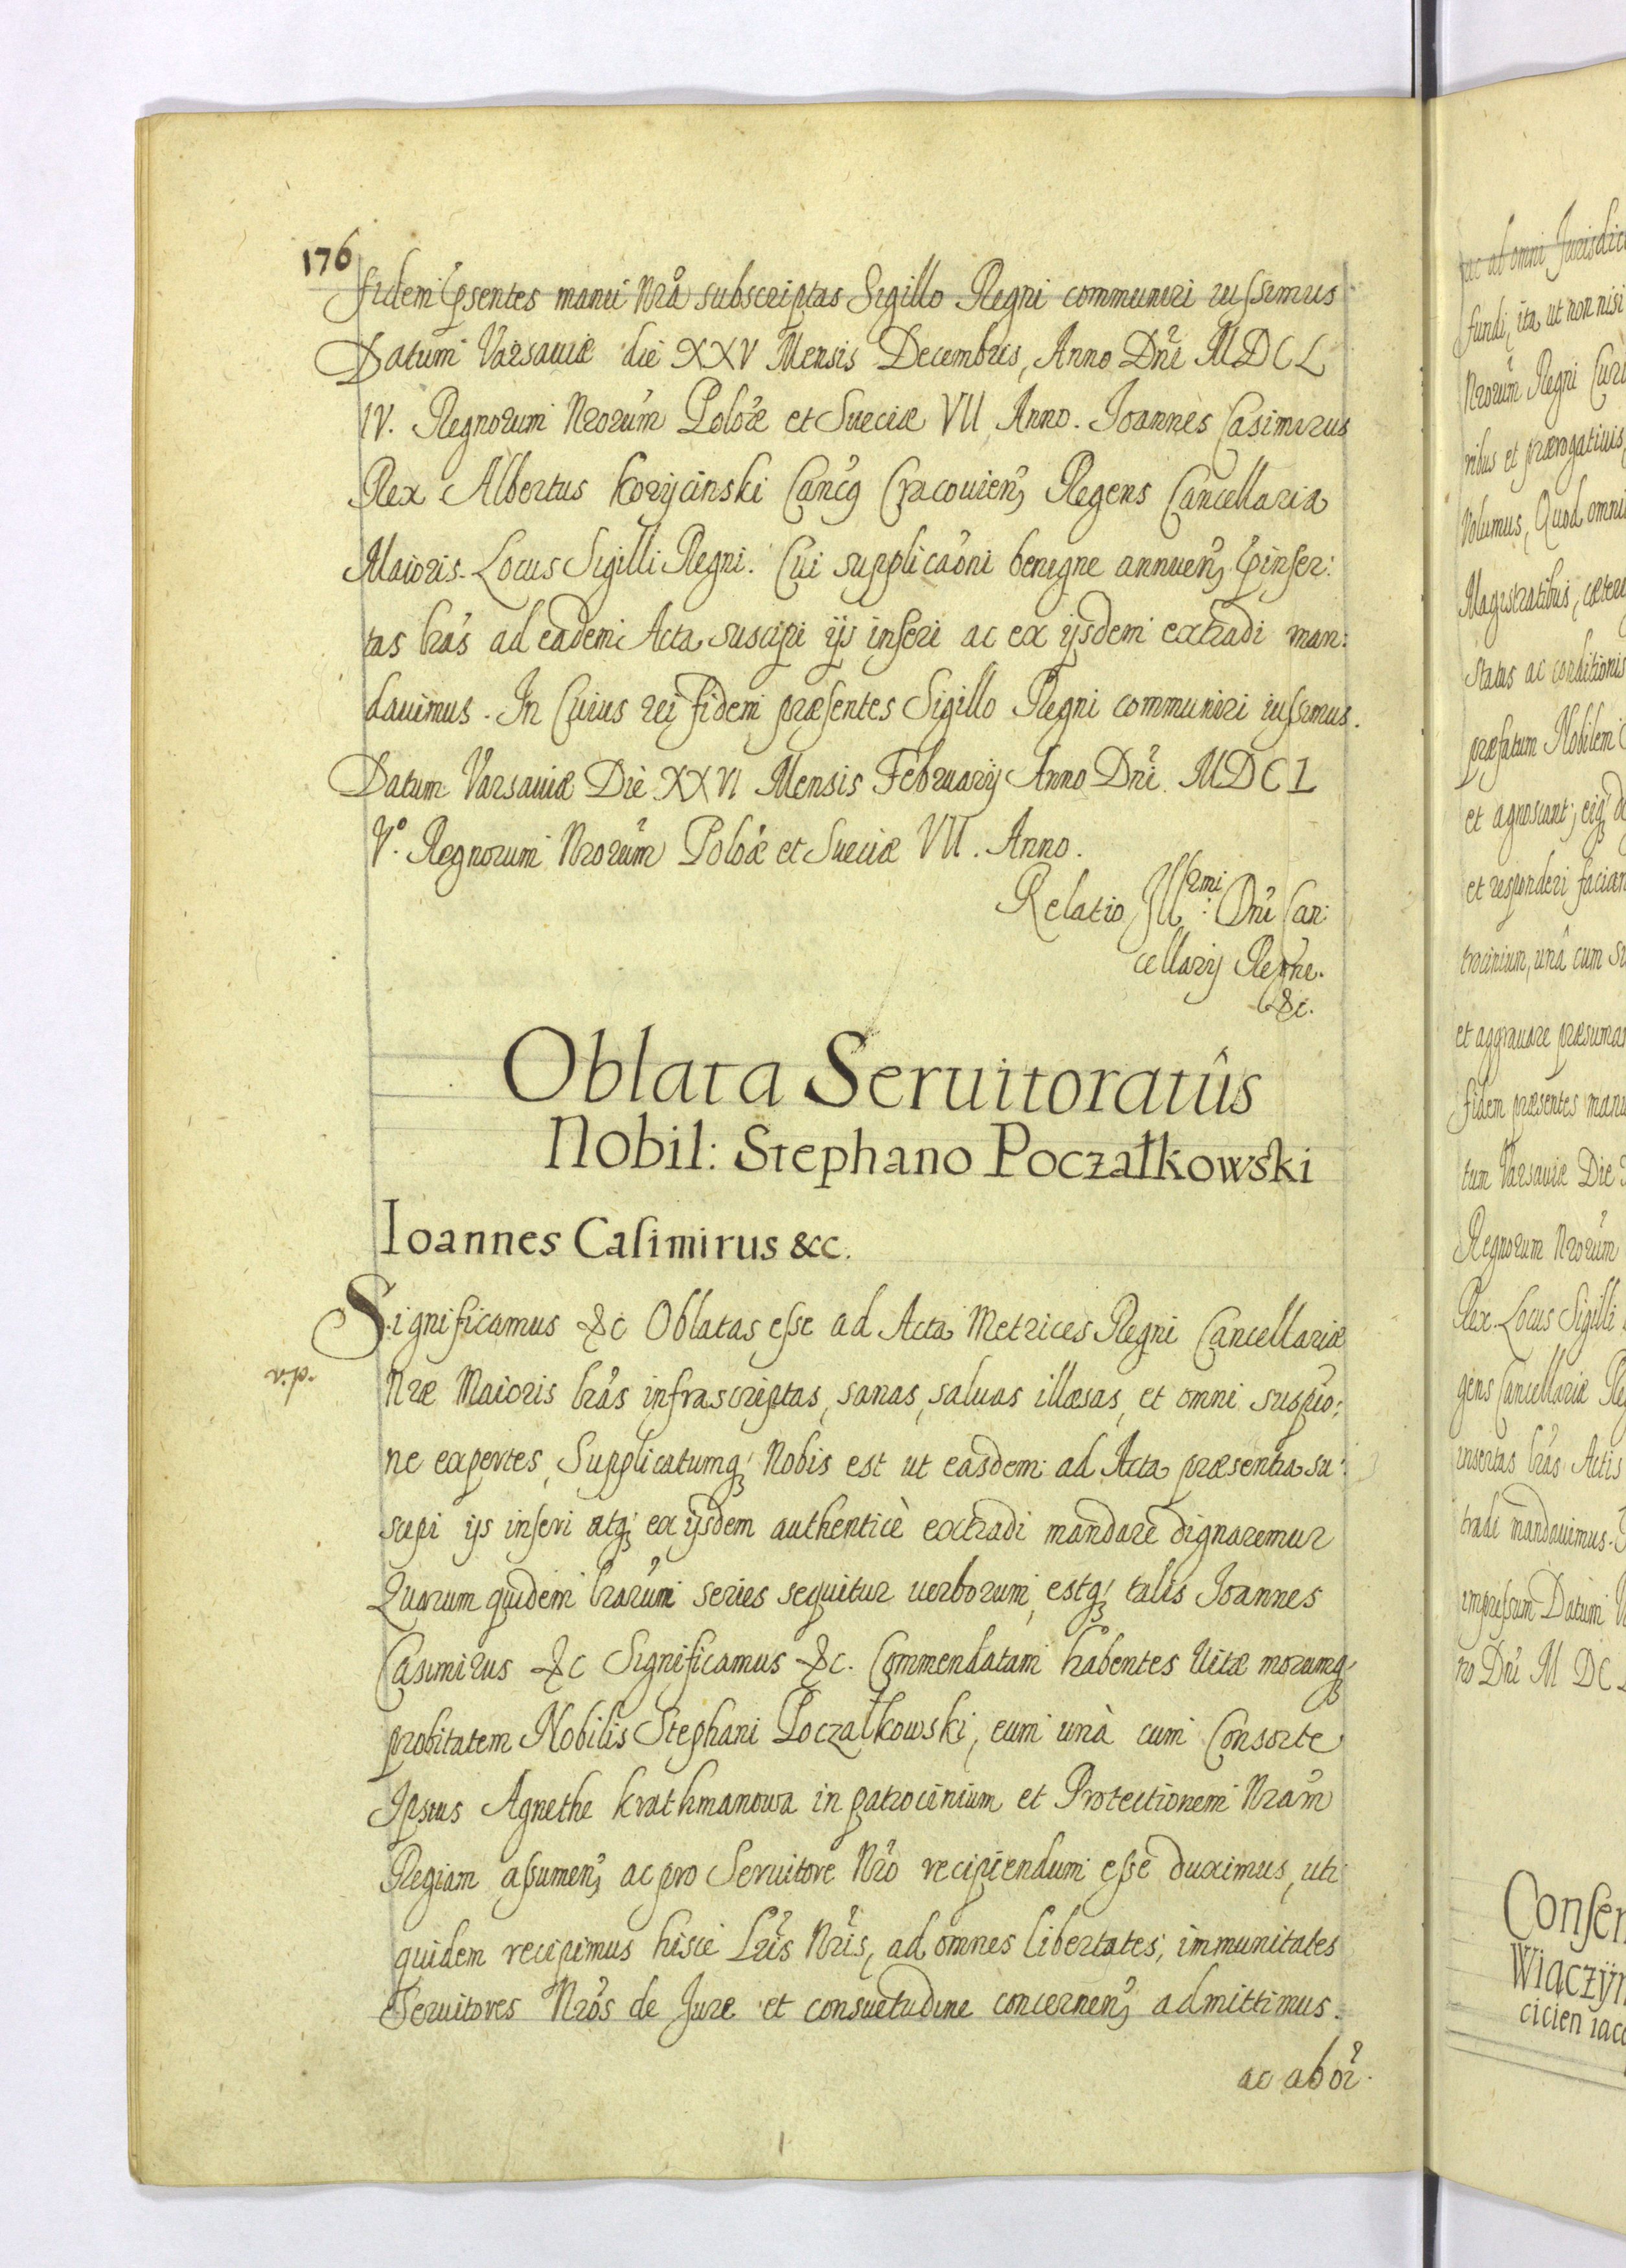 176
fidem p̃sentes manu Nrã subscriptas Sigillo Regni communiri iussimus
Datum Varsaviæ die XXV Mensis Decembris, Anno Dñi MDCL
IV. Regnorum Nrorũm Polõæ et Sueciæ VII Anno. Joannes Casimirus
Rex Albertus Koryciński Canc9 Cracovien9 Regens Cancellariæ
Maioris. Locus Sigilli Regni. Cui supplicaõni benigne annuen9 p̃inser:
tas lrãs ad eadem Acta suscipi ijs inseri ac ex ijsdem extradi man:
davimus. In Cuius rei fidem præsentes Sigillo Regni communiri iussimus.
Datum Varsaviæ Die XXVI Mensis Februarij Anno Dñi. MDCL
Vº. Regnorum Nrorũm Polõæ et Sueciæ VII. Anno.
Relatio Ill:rmi Dñi Can:
cellarij Regni.
&c.
Oblata Seruitoratûs
Nobil: Stephano Poczałkowski
Ioannes Casimirus &cc.
Significamus &c Oblatas esse ad Acta Metrices Regni Cancellariæ
Nræ Maioris lrãs infrascriptas, sanas, saluas illæsas, et omni suspio:
ne expertes, Supplicatumq; Nobis est ut easdem ad Acta præsentia su:
scipi ijs inseri atq; ex ijsdem authenticè extradi mandare dignaremur
Quarum quidem lrarũm series sequitur uerborum, estq; talis Joannes
Casimirus &c Significamus &c. Commendatam habentes Uitæ morumq;
probitatem Nobilis Stephani Poczałkowski, eum unà cum Consorte
Ipsius Agnethe Krathmanowa in patrocinium et Protectionem Nrãm
Regiam assumen9 ac pro Seruitore Nrõ recipiendum esse duximus, uti
quidem recipimus hisce Lrĩs Nrĩs, ad omnes libertates, immunitates
Seruitores Nrõs de Jure et consuetudine concernen9 admittimus.
ac ab oĩ.
ac ab omni Jurisdic
fundi, ita ut non nisi
Nrorũm Regni Curi
ribus et prærogatiuis,
Volumus, Quod omni
Magistratibus, cæter
Status ac conditionis
præfatum Nobilem
et agnoscant, eiq;
et responderi facian
trocinium, unâ cum
et aggrauare præsuman
fidem præsentes manu
tum Varsauiæ Die
Regnorum Nrorũm
Rex. Locus Sigilli
gens Cancellariæ Reg
insertas lrãs Actis
tradi mandauimus.
impressum Datum
no Dñi M DC
Consen
Wiączÿn
cicien iac